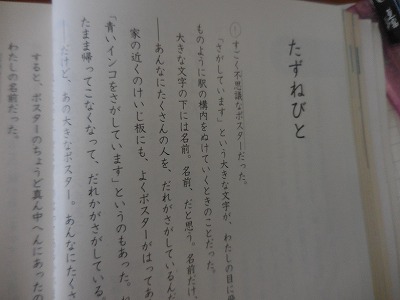 たずねびと
①すごく不思議なポスターだった。
「さがしています」という大きな文字が、わたしの目に
ものように駅の構内をぬけていくときのことだった。
大きな文字の下には名前。名前、だと思う。名前だけ。
――あんなにたくさんの人を、だれがさがしているんだ
家の近くのけいじ板にも、よくポスターがはってあ
「青いインコをさがしています」というのもあった。
たまま帰ってこなくなって、だれかがさがしている。
――だけど、あの大きなポスター。あんなにたくさ
すると、ポスターのちょうど真ん中へんにあったの
わたしの名前だった。